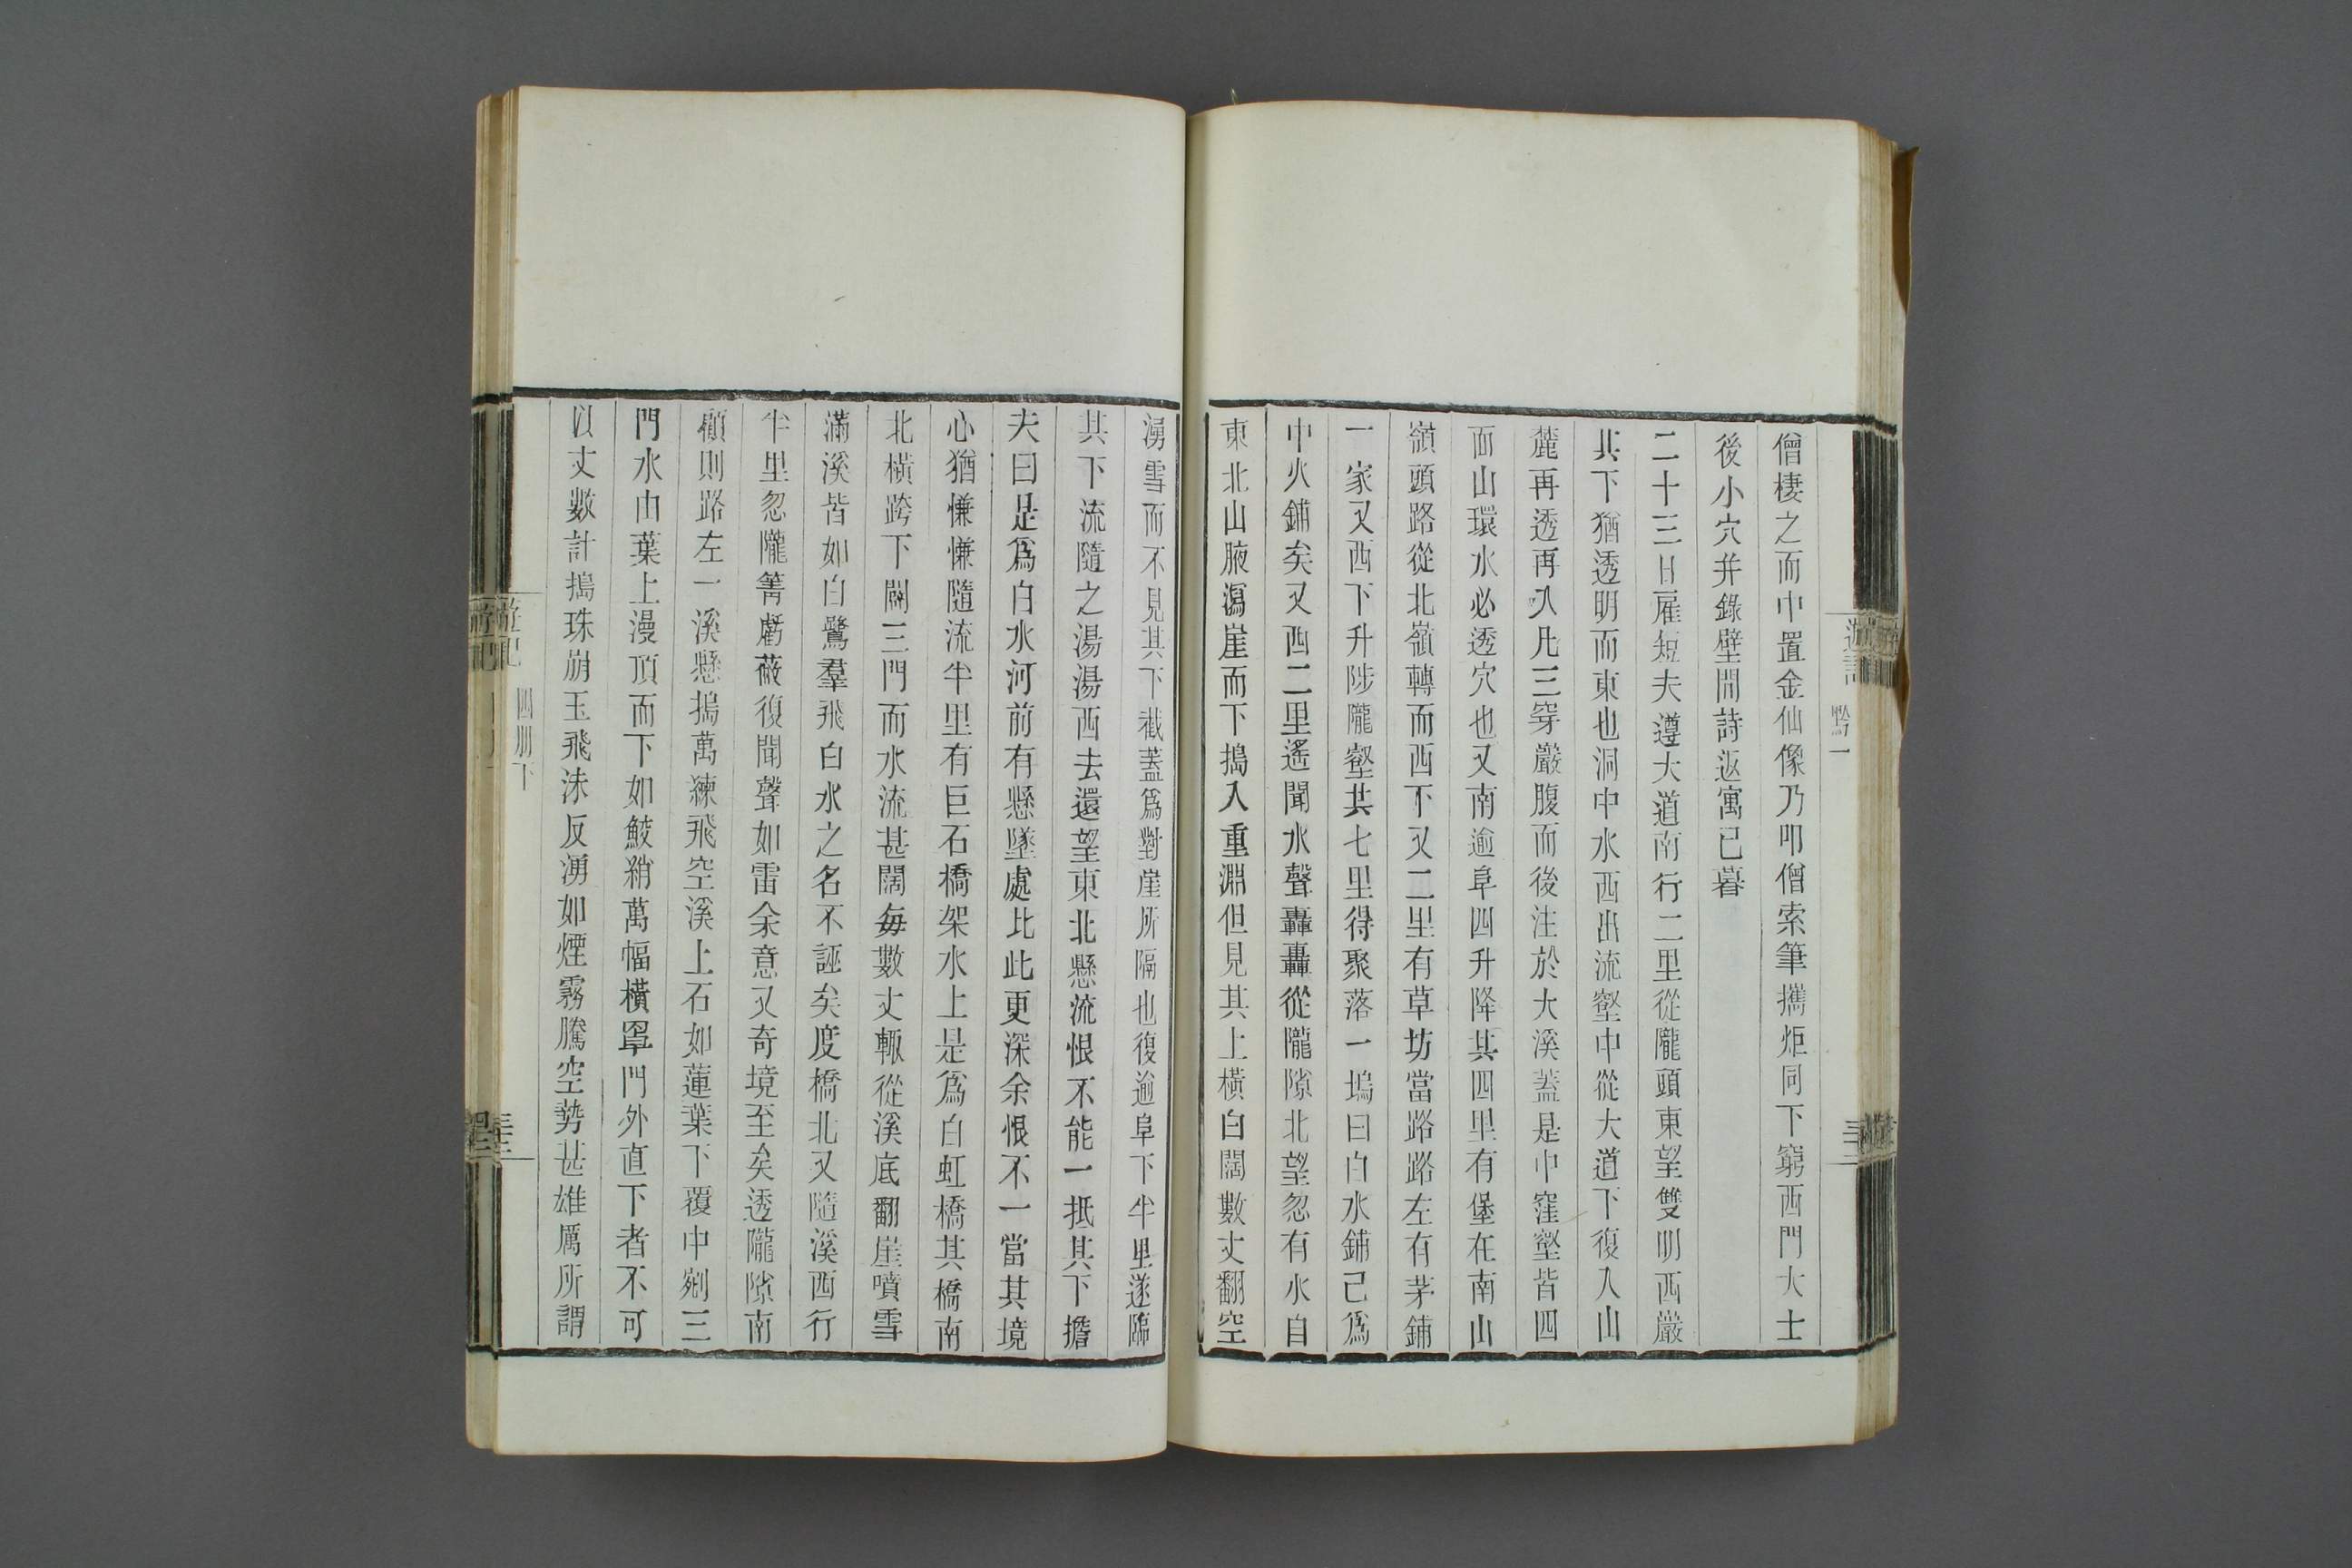 僧棲之而中置金仙像乃叩僧索筆攜炬同下窮西門大士
後小穴并錄壁間詩返寓已暮
二十三日雇短夫遵大道南行二里從隴頭東望雙明西巖
其下猶透明而東也洞中水西出流壑中從大道下復入山
麓再透再入凡三穿巖腹而後注於大溪蓋是中窪壑皆四
面山環水必透穴也又南逾阜四升降其四里有堡在南山
嶺頭路從北嶺轉而西下又二里有草坊當路路左有茅鋪
一家又西下升陟隴壑共七里得聚落一塢曰白水鋪已爲
中火鋪矣又西二里遙聞水聲轟轟從隴隙北望忽有水自
東北山腋瀉崖而下搗入重淵但見其上橫白闊數丈翻空
湧雪而不見其下截蓋爲對崖所隔也復逾阜下半里遂臨
其下流隨之湯湯西去還望東北懸流恨不能一抵其下擔
夫曰是爲白水河前有懸墜處比此更深余恨不一當其境
心猶慊慊隨流半里有巨石橋架水上是爲白虹橋其橋南
北橫跨下闢三門而水流甚闊每數丈輒從溪底翻崖噴雪
滿溪皆如白鷺羣飛白水之名不誣矣度橋北又隨溪西行
半里忽隴箐虧蔽復聞聲如雷余意又奇境至矣透隴隙南
顧則路左一溪懸搗萬練飛空溪上石如蓮葉下覆中剜三
門水由葉上漫頂而下如鮫綃萬幅橫罩門外直下者不可
以丈數計搗珠崩玉飛沫反湧如煙霧騰空勢甚雄厲所謂
遊記 黔一
遊記 四册下